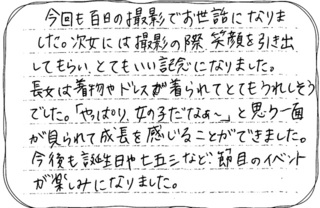 今回も百日の撮影でお世話になりま
した。次女には撮影の際、笑顔を引き出
してもらい、とてもいい記念になりました。
長女は着物やドレスが着られてとてもうれしそう
でした。「やっぱり、女の子だなぁ～」と思う一面
が見られて成長を感じることができました。
今後も誕生日や七五三など節目のイベント
が楽しみになりました。